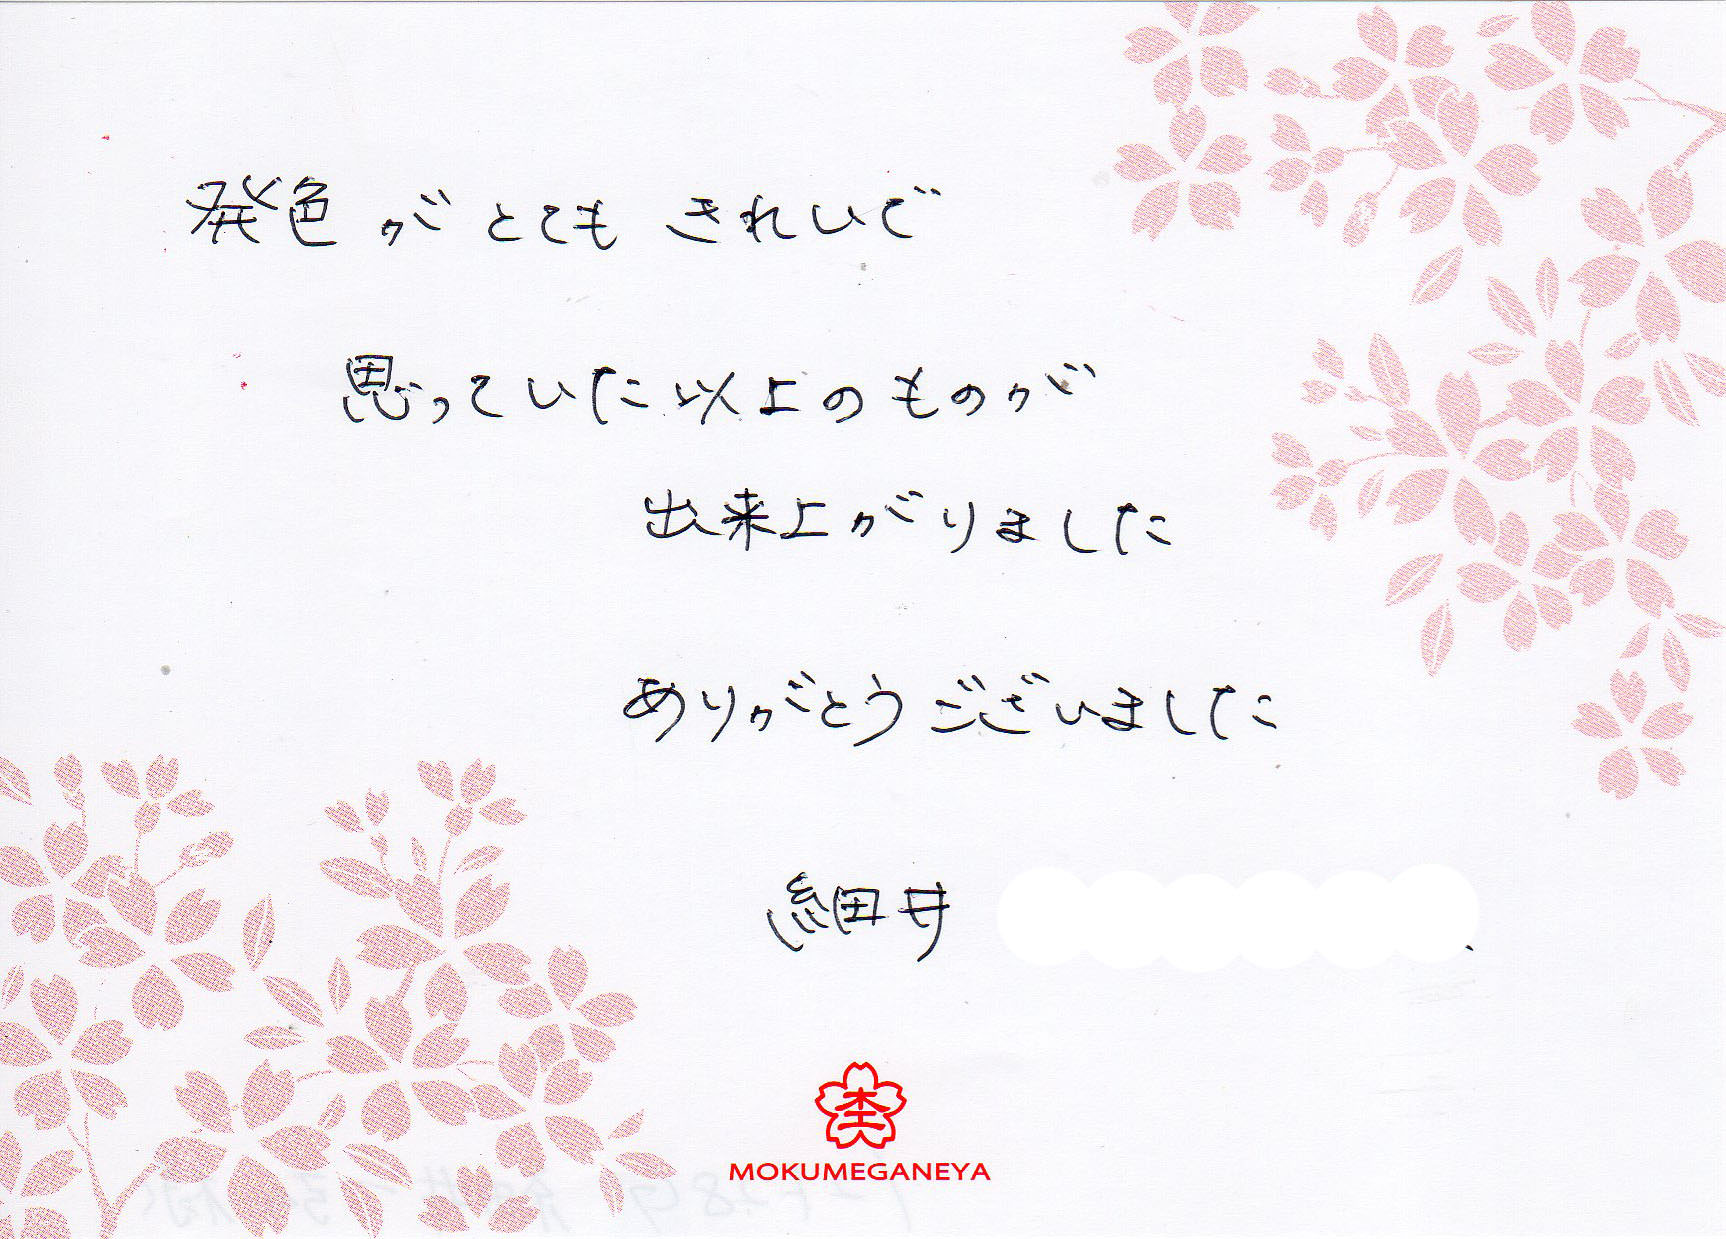 発色がとてもきれいで
思っていた以上のものが
出来上がりました
ありがとうございました
細井
MOKUMEGANEYA